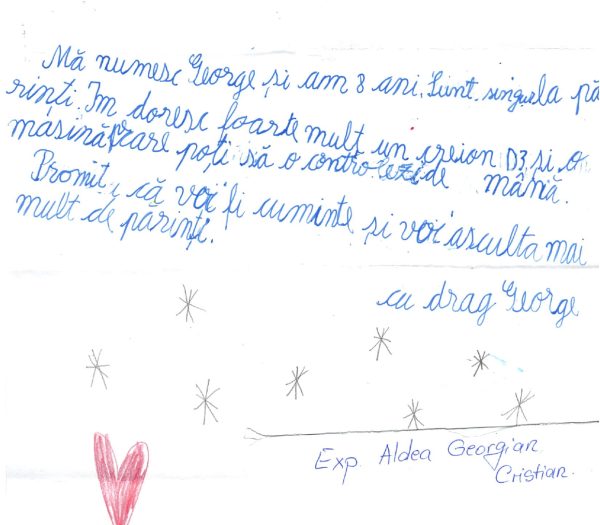 Mă numesc George și am 8 ani. Sunt singur la pă
rinți. Îm doresc foarte mult un creion D3 și o
mașină care poți să o controlezi de mână.
Promit, că voi fi cuminte și voi asculta mai
mult de părinți.
cu drag George
Exp. Aldea Georgian
Cristian.